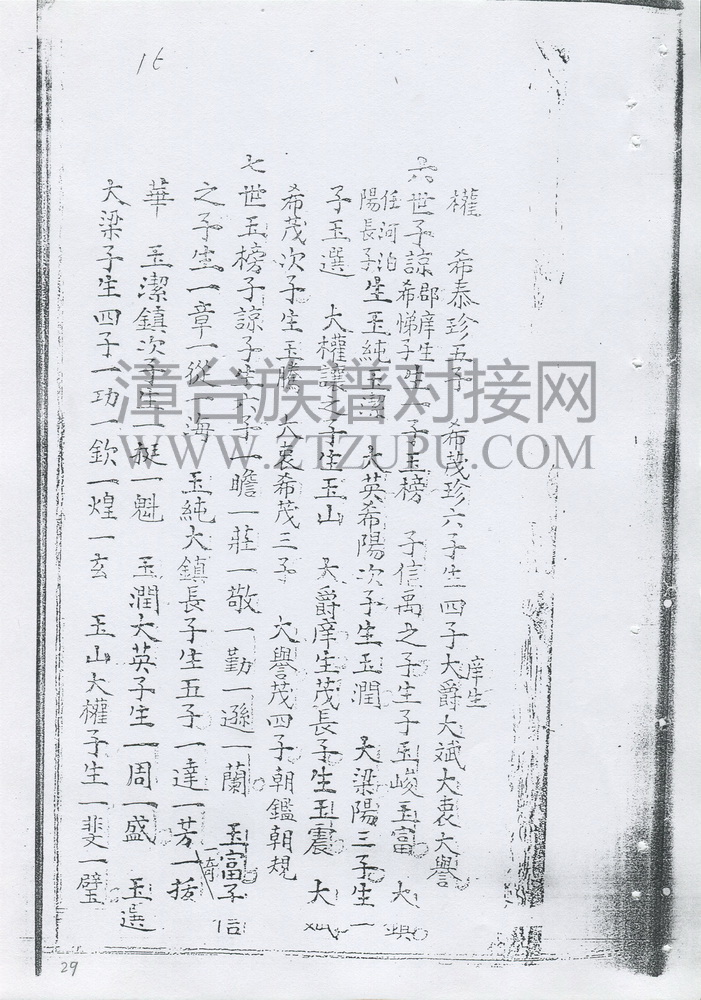 16
權 希泰珍五子 希茂珍六子生四子大爵庠生大斌大衷大譽
六世子諒郡庠生希悌子生一子玉榜 子信禹之子生子玉峻玉富 大鎮
任河泊
陽長子生玉純玉潔 大英希陽次子生玉潤 大梁陽三子生一
子玉選 大權讓之子生玉山 大爵庠生茂長子生玉震 大斌
希茂次子生玉膽 大衷希茂三子 大譽茂四子朝鑑朝規
七世玉榜子諒子生六子一瞻一莊一敬一勤一遜一蘭 玉富子信
之子生一章一從一海 玉純大鎮長子生五子一達一芳一琦一拔
華 玉潔鎮次子生一挺一魁 玉潤大英子生一周一盛 玉選
大梁子生四子一功一欽一煌一玄 玉山大權子生一斐一璧
29
漳台族谱对接网
WWW.ZTZUPU.COM